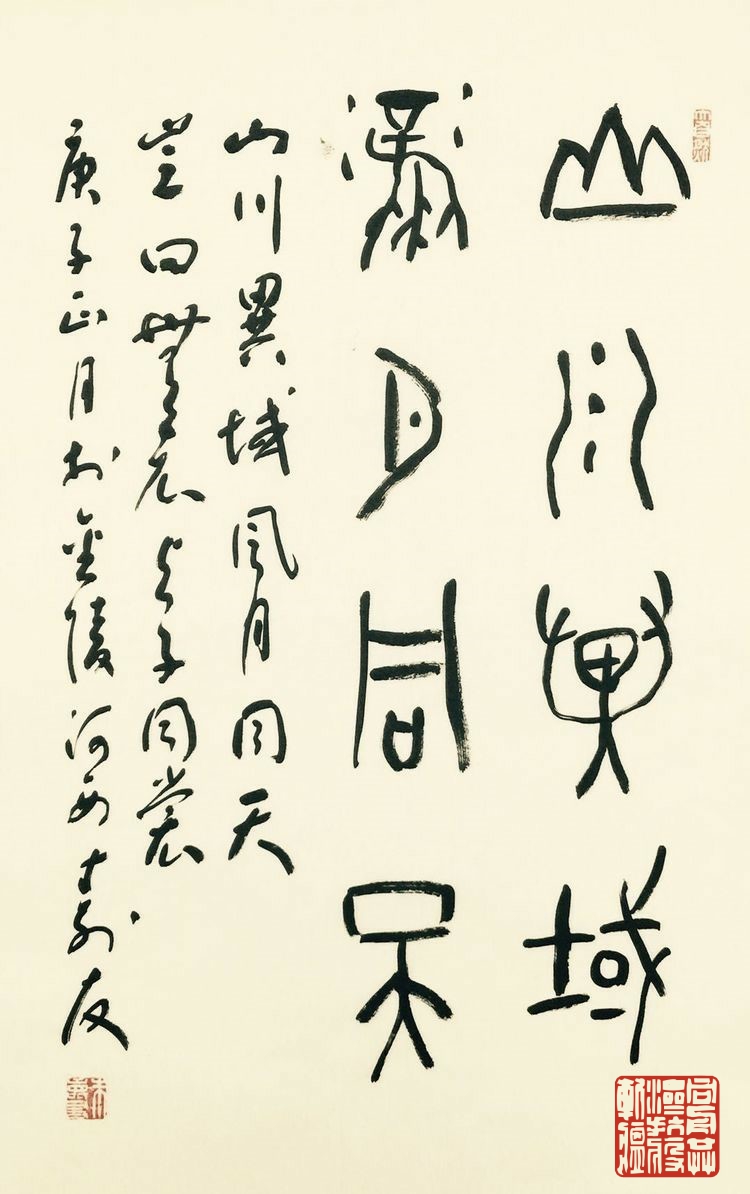 山川異域
風月同天
山川異域風月同天
豈曰無衣與子同裳
庚子正月於金陵河西友